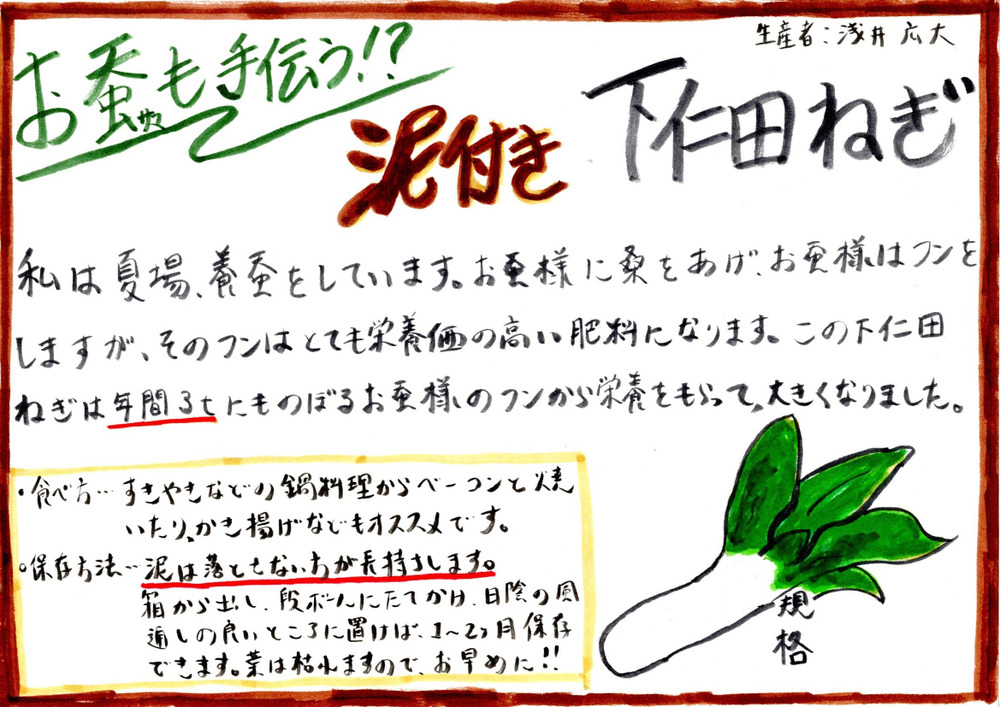 生産者:浅井広大
お蚕も手伝う!?
泥付き
下仁田ねぎ
私は夏場、養蚕をしています。お蚕様に桑をあげ、お蚕様はフンを
しますが、そのフンはとても栄養価の高い肥料になります。この下仁田
ねぎは年間3tにものぼるお蚕様のフンから栄養をもらって、大きくなりました。
・食べ方…すきやきなどの鍋料理からベーコンと焼
いたり、かき揚げなどもオススメです。
・保存方法…泥は落とさない方が長持ちします。
箱から出し、段ボールにたてかけ、日陰の風
通しの良いところに置けば、1〜2ヶ月保存
できます。葉は枯れますので、お早めに!!
規
格